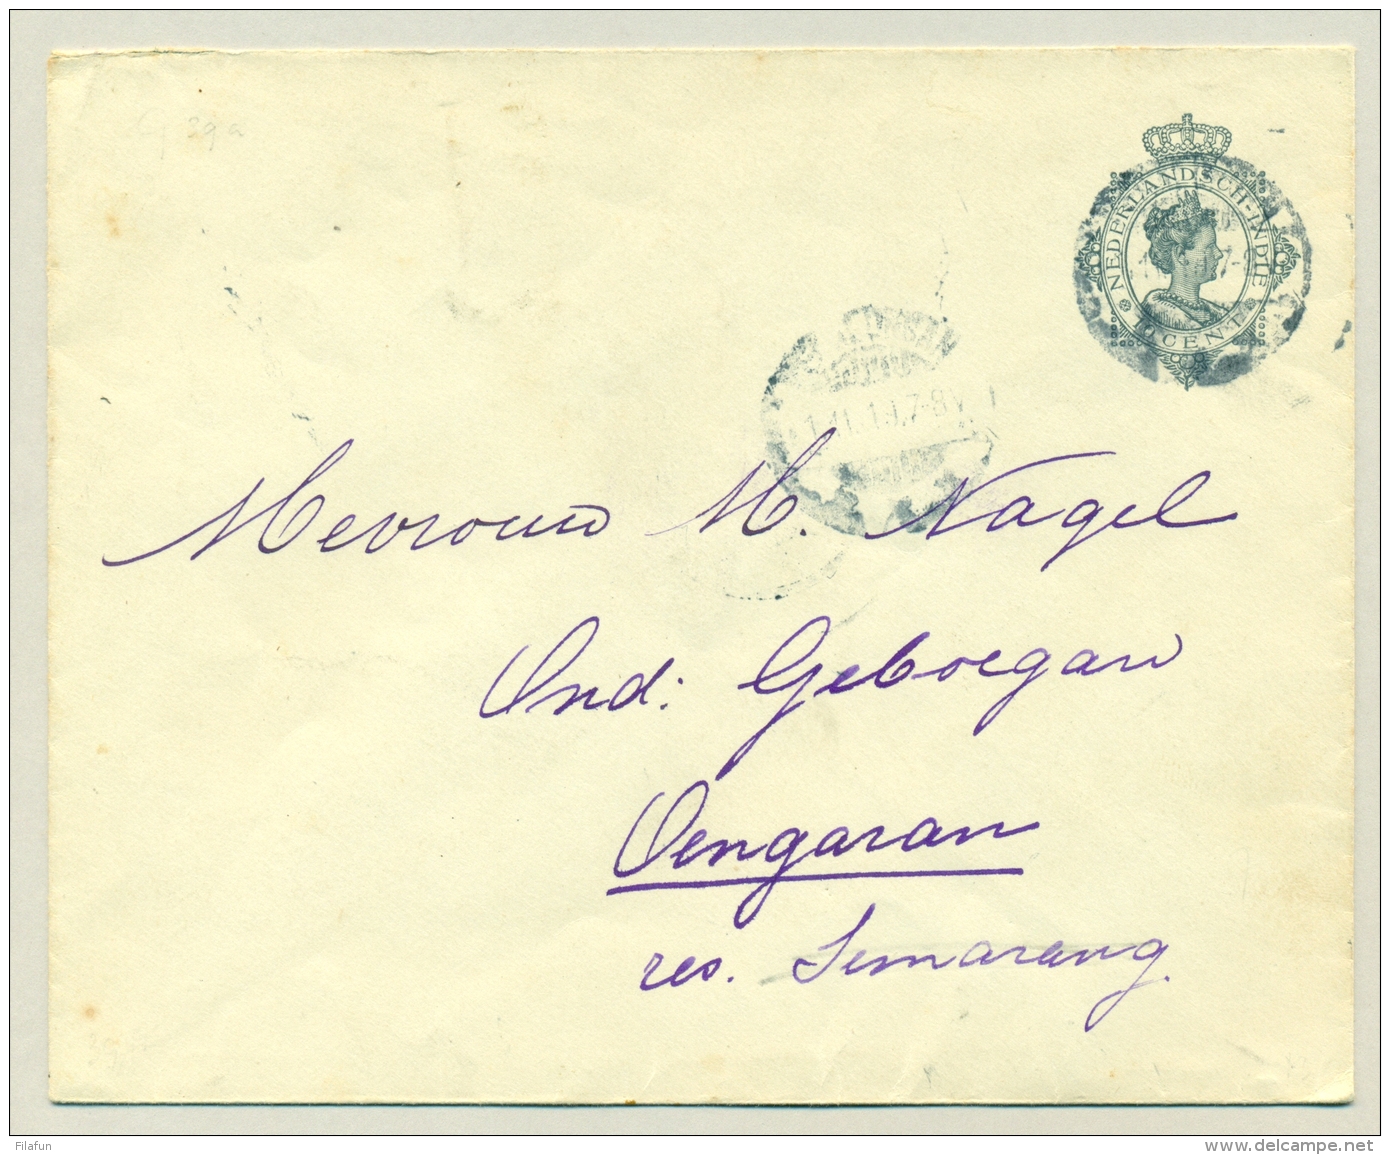 29a
NEDERLANDSCH-INDIE
10 CENT
Mevrouw M. Nagel
Ond: Geboegan
Oengaran
res. Semarang.
Filafun
delcampe.net